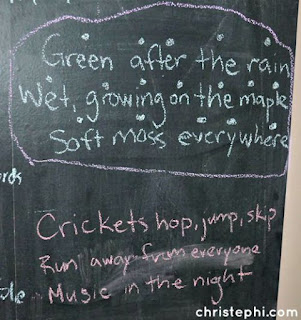 Green after the rain
Wet, growing on the maple
Soft moss everywhere
Crickets hop, jump, skip
Run away from everyone
Music in the night
christephi.com